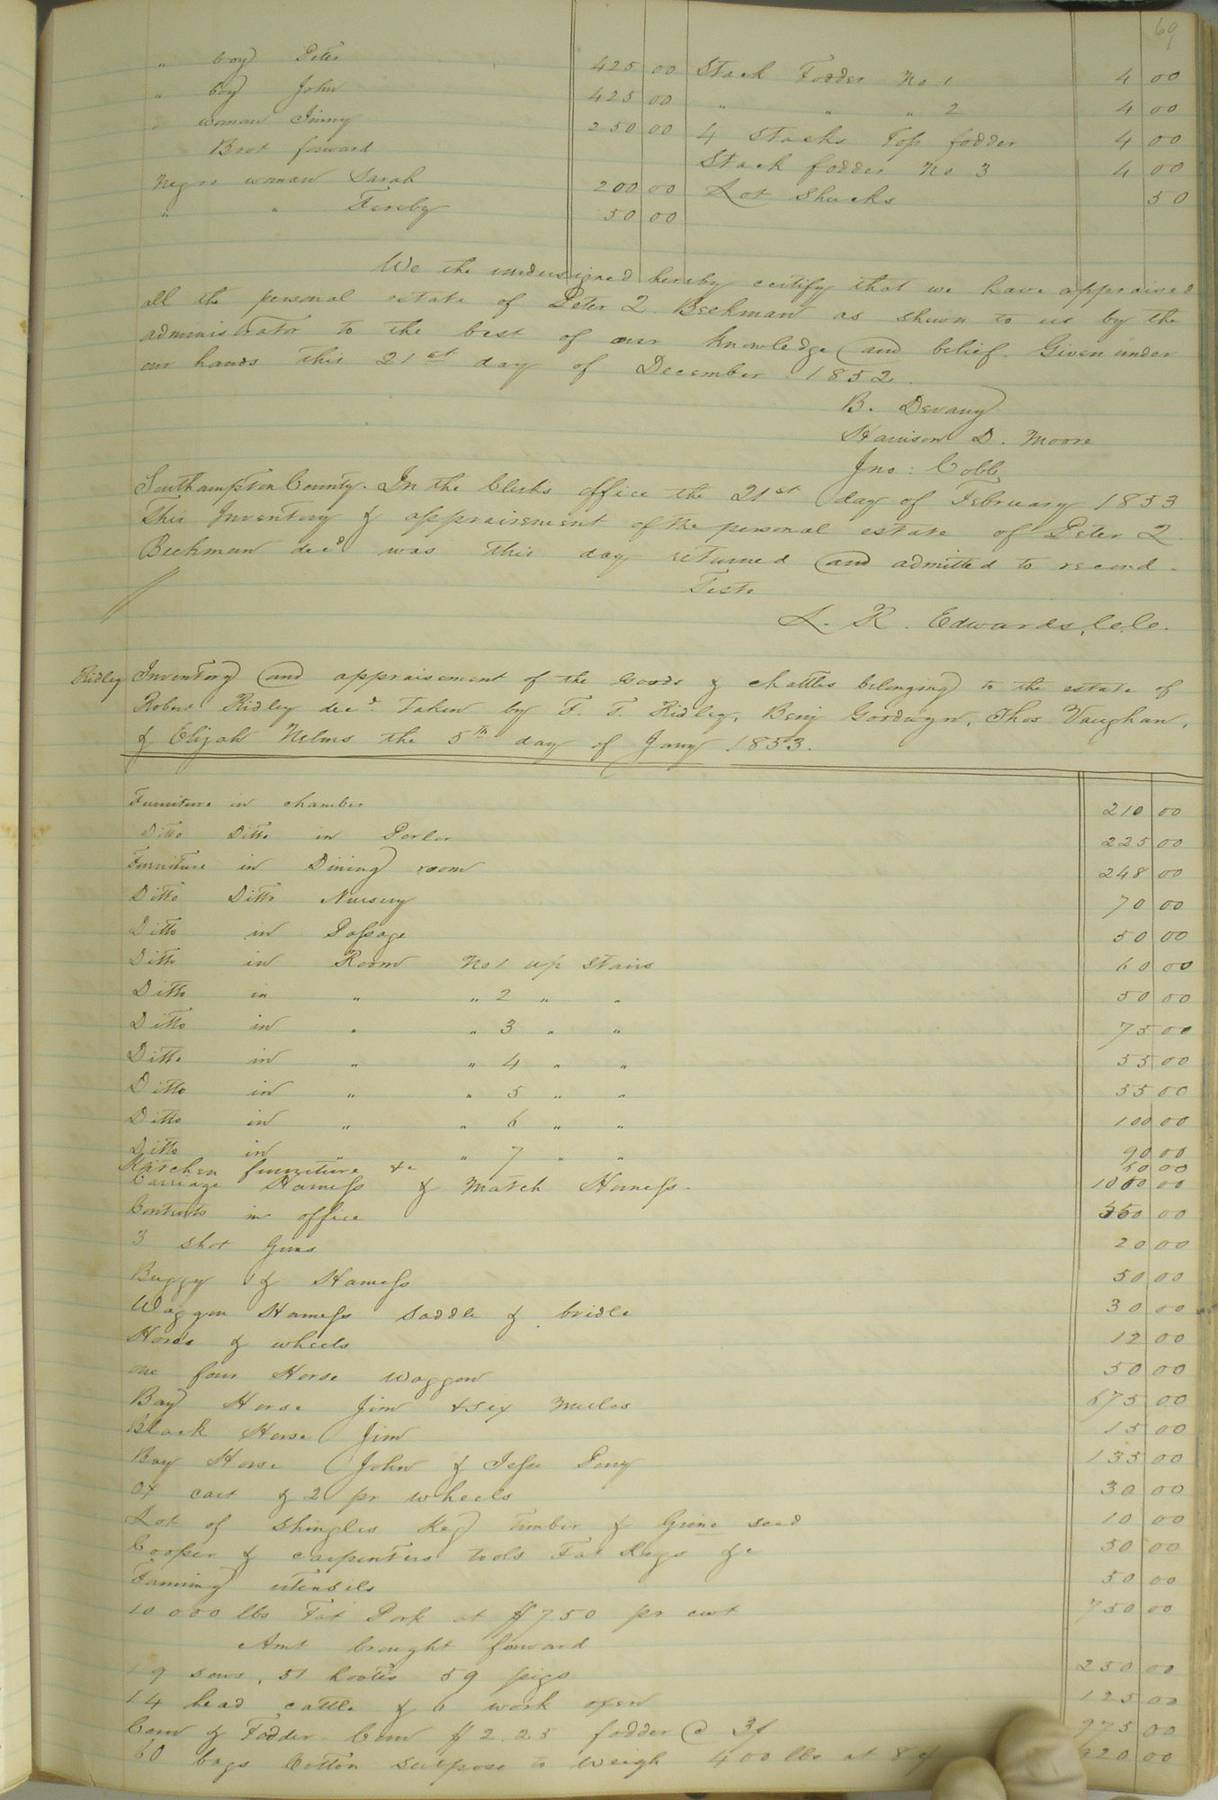 69
" boy Peter 425 00 Stack Fodder No 1 4 00
" boy John 425 00 " " " 2 4 00
" woman Jinny 250 00 4 Stacks Top fodder 4 00
Brot forward Stack fodder No 3 4 00
Negro woman Sarah 200 00 Lot Shucks 50
" " Fereby 50 00
We the undersigned hereby certify that we have appraised
all the personal estate of Peter Q. Beekman as shewn to us by the
administrator to the best of our knowledge and belief. Given under
our hands this 21st day of December 1852.
B. Devany
Harrison D. Moore
Jno: Cobb
Southampton County. In the Clerks office the 21st day of February 1853
This Inventory & appraisement of the personal estate of Peter Q.
Beekman decd was this day returned and admitted to record.
Teste
L. R. Edwards, C.C.
Ridley Inventory and appraisement of the Goods & chattles belonging to the estate of
Robert Ridley decd. Taken by F. T. Ridley, Benj Goodwyn, Thos Vaughan,
& Elijah Nelms the 5th day of Jany 1853.
Furniture in chamber 210 00
Ditto Ditto in Parler 225 00
Furniture in Dining room 248 00
Ditto Ditto Nursery 70 00
Ditto in Passage 50 00
Ditto in Room No 1 up Stairs 60 00
Ditto in " " 2 " " 50 00
Ditto in " " 3 " " 75 00
Ditto in " " 4 " " 55 00
Ditto in " " 5 " " 55 00
Ditto in " " 6 " " 100 00
Ditto in " " 7 " " 90 00
Kitchen furniture &c 50 00
Carriage Harness & match Horses 1000 00
Contents in office 350 00
3 Shot Guns 20 00
Buggy & Harness 50 00
Waggon Harness Saddle & bridle 30 00
& wheels 12 00
one four Horse waggon 50 00
Bay Horse Jim & six Mules 675 00
Black Horse Jim 15 00
Bay Horse John & Pony 135 00
Ox cart & 2 pr wheels 30 00
Lot of Shingles timber & seed 10 00
Cooper & carpenters tools &c 50 00
Farming utensils 50 00
10000 lbs Fat Pork at $7.50 pr cwt 750 00
Amt brought forward
19 sows, 51 59 pigs 250 00
14 head cattle & 6 work oxen 125 00
Corn & Fodder. Corn $2.25 fodder @ 3/ 975 00
60 bags Cotton to weigh 400 lbs at 8 920 00